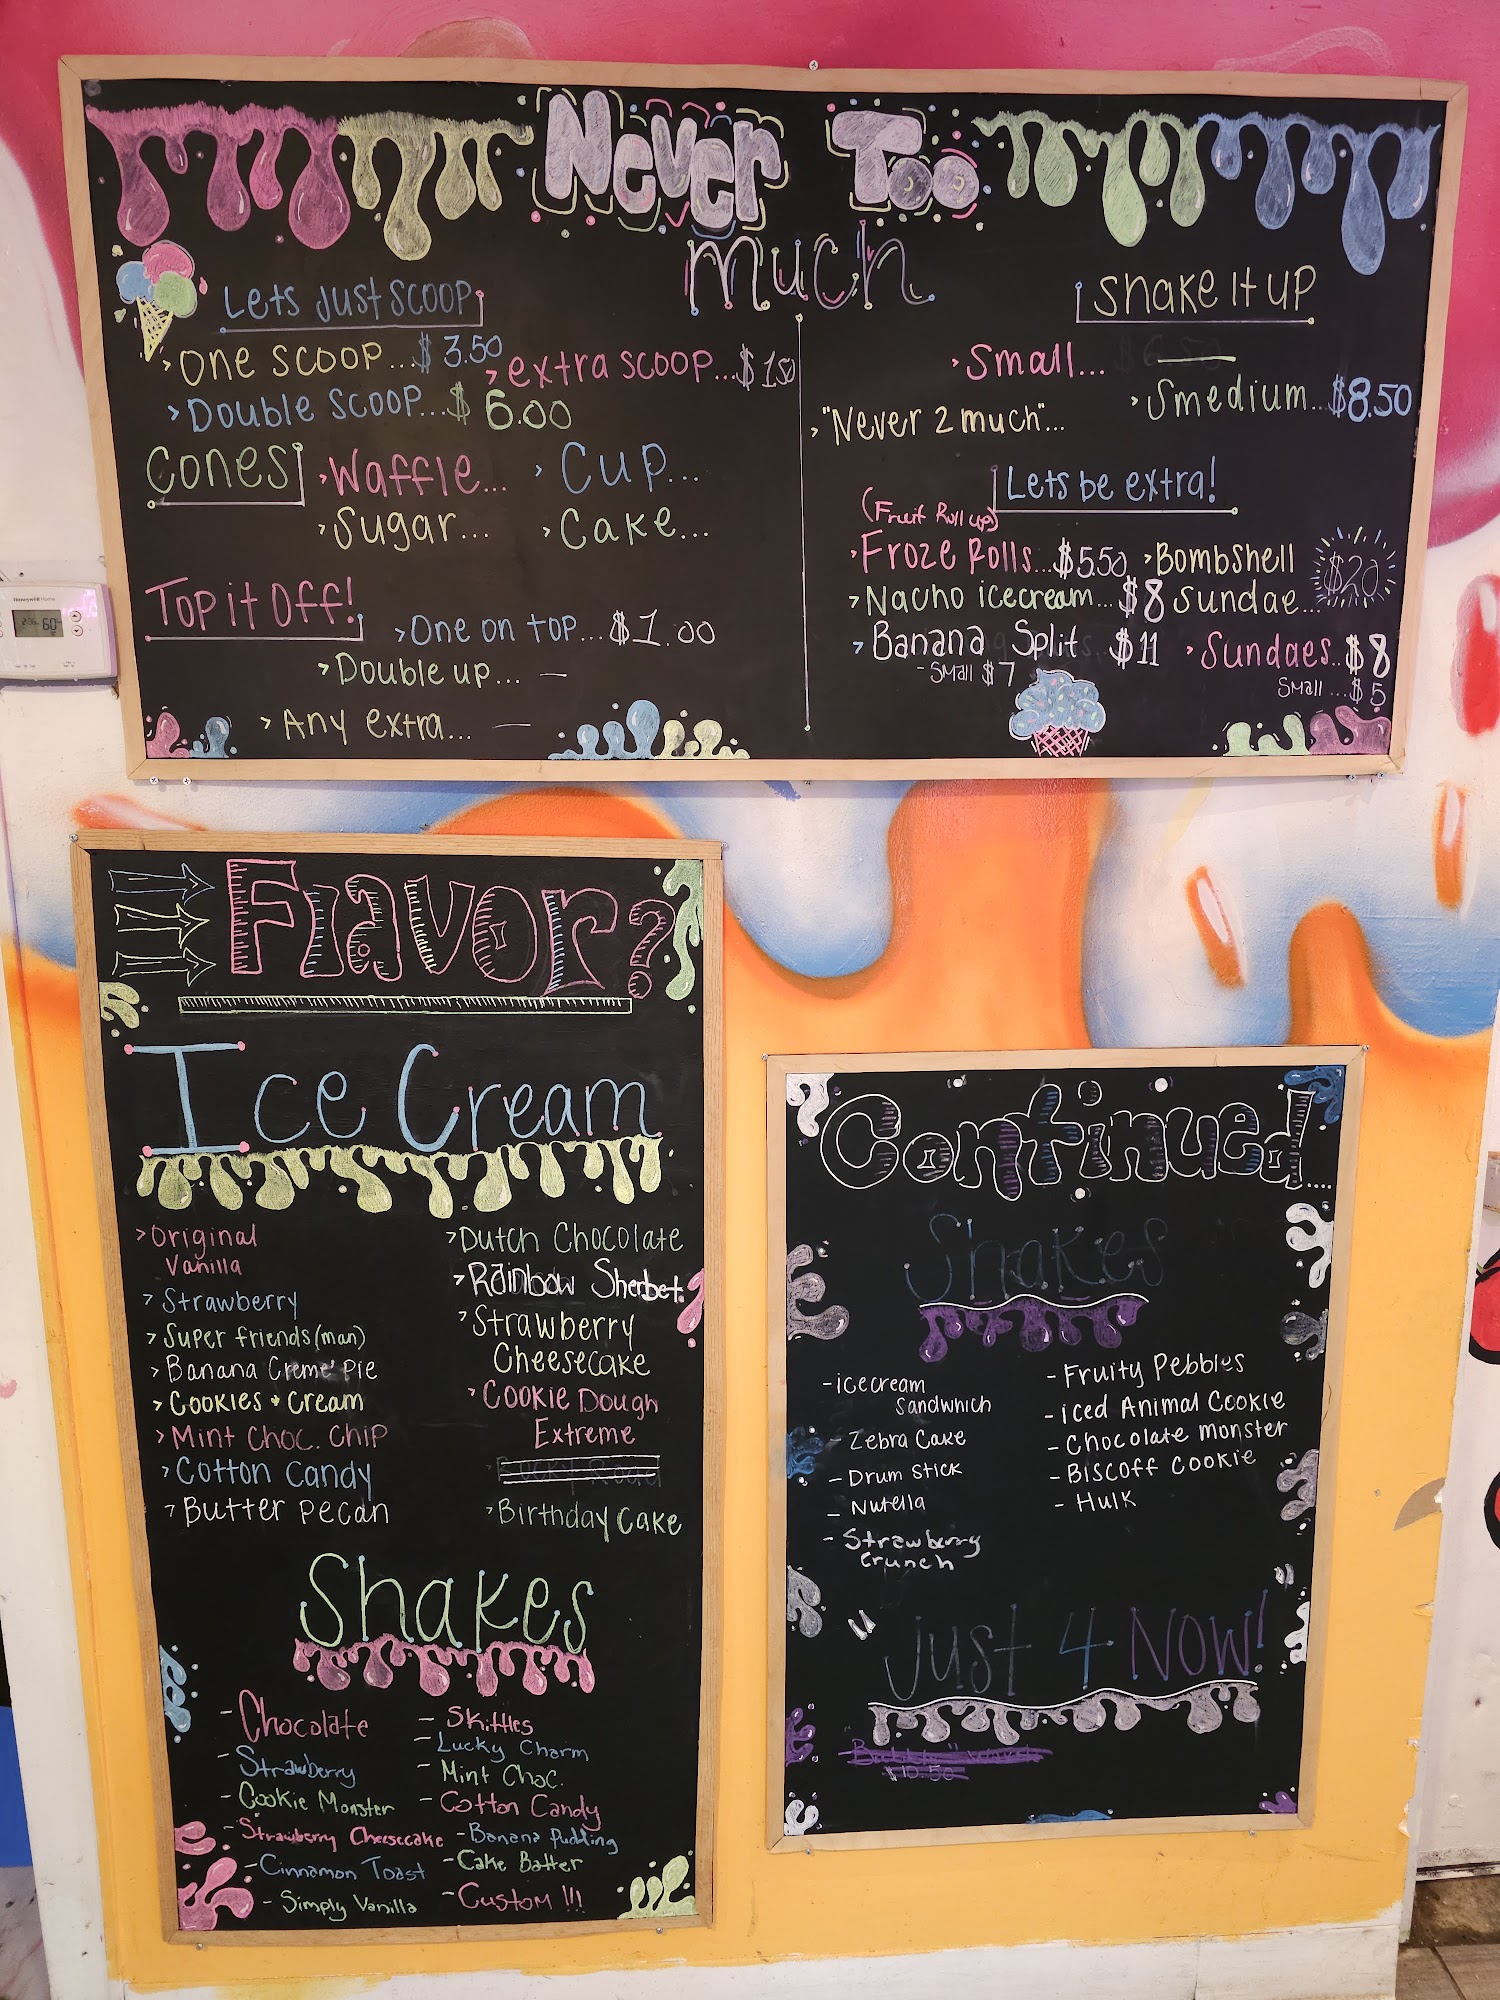 Never Too
much
Lets Just SCOOP
>One scoop...$3.50
>extra scoop...$1.50
>Double scoop...$6.00
Cones
>Waffle...
>Cup...
>Sugar...
>Cake...
Top it Off!
>One on top...$1.00
>Double up... —
>Any extra... —
Shake It up
>Small...
>Smedium...$8.50
>"Never 2 much"...
Lets be extra!
(Fruit Roll up)
>Froze Rolls...$5.50
>Bombshell
Sundae...
$20
>Nacho icecream...$8
>Banana Split $11
-Small $7
>Sundaes..$8
Small...$5
Flavor?
Ice Cream
>Original
Vanilla
>Strawberry
>Super friends(man)
>Banana Creme' Pie
>Cookies + Cream
>Mint Choc. Chip
>Cotton Candy
>Butter Pecan
>Dutch Chocolate
>Rainbow Sherbet
>Strawberry
Cheesecake
>Cookie Dough
Extreme
>Birthday Cake
Shakes
-Chocolate
-Strawberry
-Cookie Monster
-Strawberry Cheesecake
-Cinnamon Toast
-Simply Vanilla
-Skittles
-Lucky Charm
-Mint Choc.
-Cotton Candy
-Banana Pudding
-Cake Batter
-Custom !!!
Continued....
Shakes
-icecream
Sandwhich
-Zebra Cake
-Drum stick
-Nutella
-Strawberry
crunch
-Fruity Pebbles
-iced Animal Cookie
-Chocolate monster
-Biscoff cookie
-Hulk
Just 4 NOW!
$10.50
Honeywell Home
60